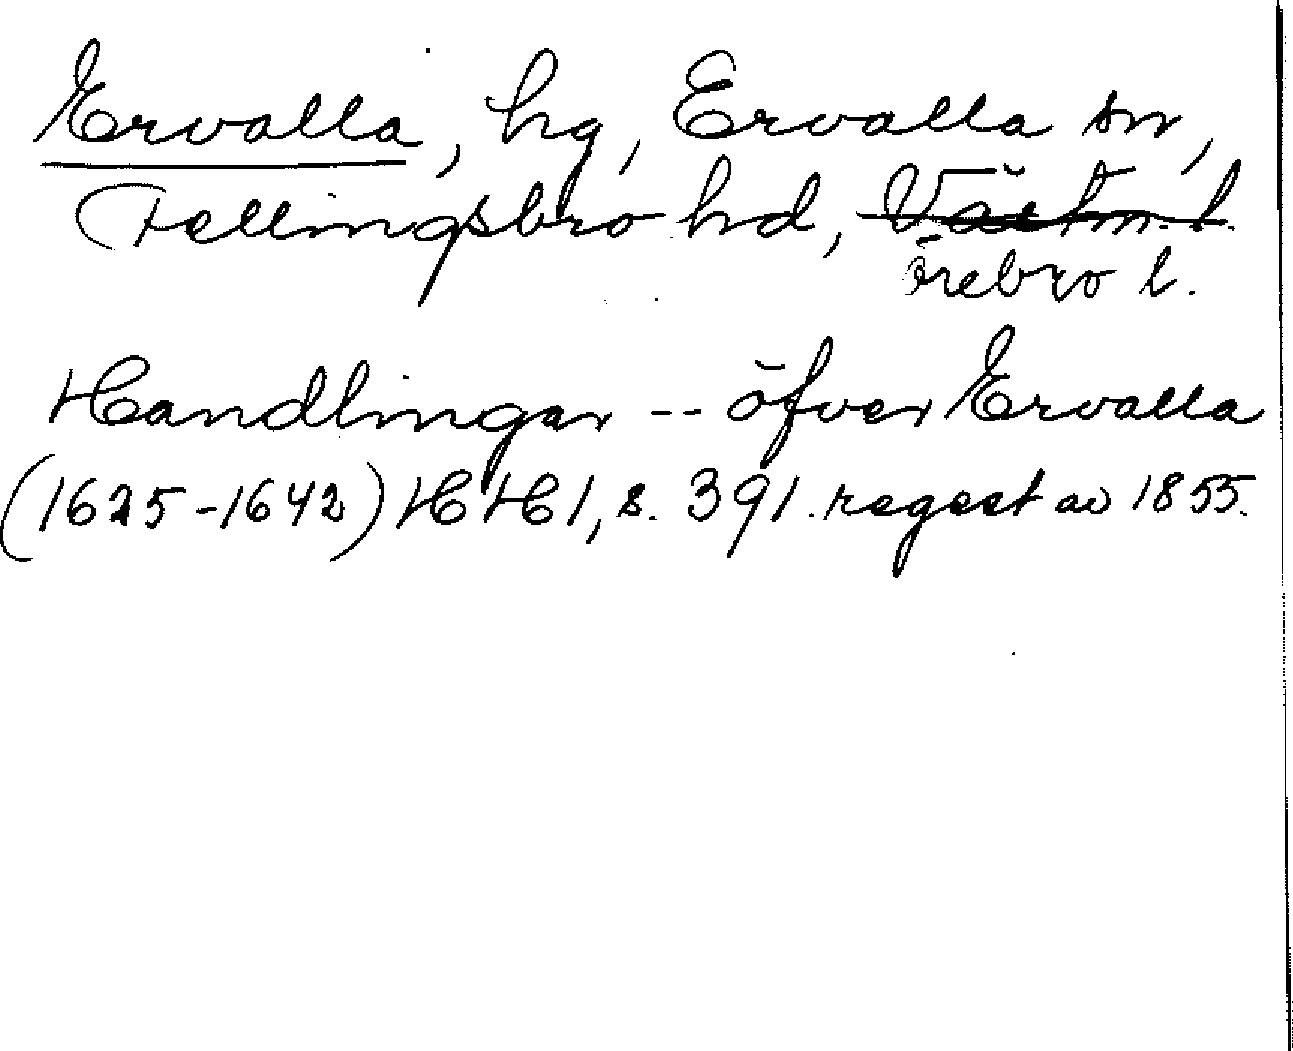 Ervalla, hg, Ervalla sn,
Fellingsbro hd, Västm. l.
Örebro l.
Handlingar -- öfver Ervalla
(1625-1642) HH 1, s. 391. regest av 1855.